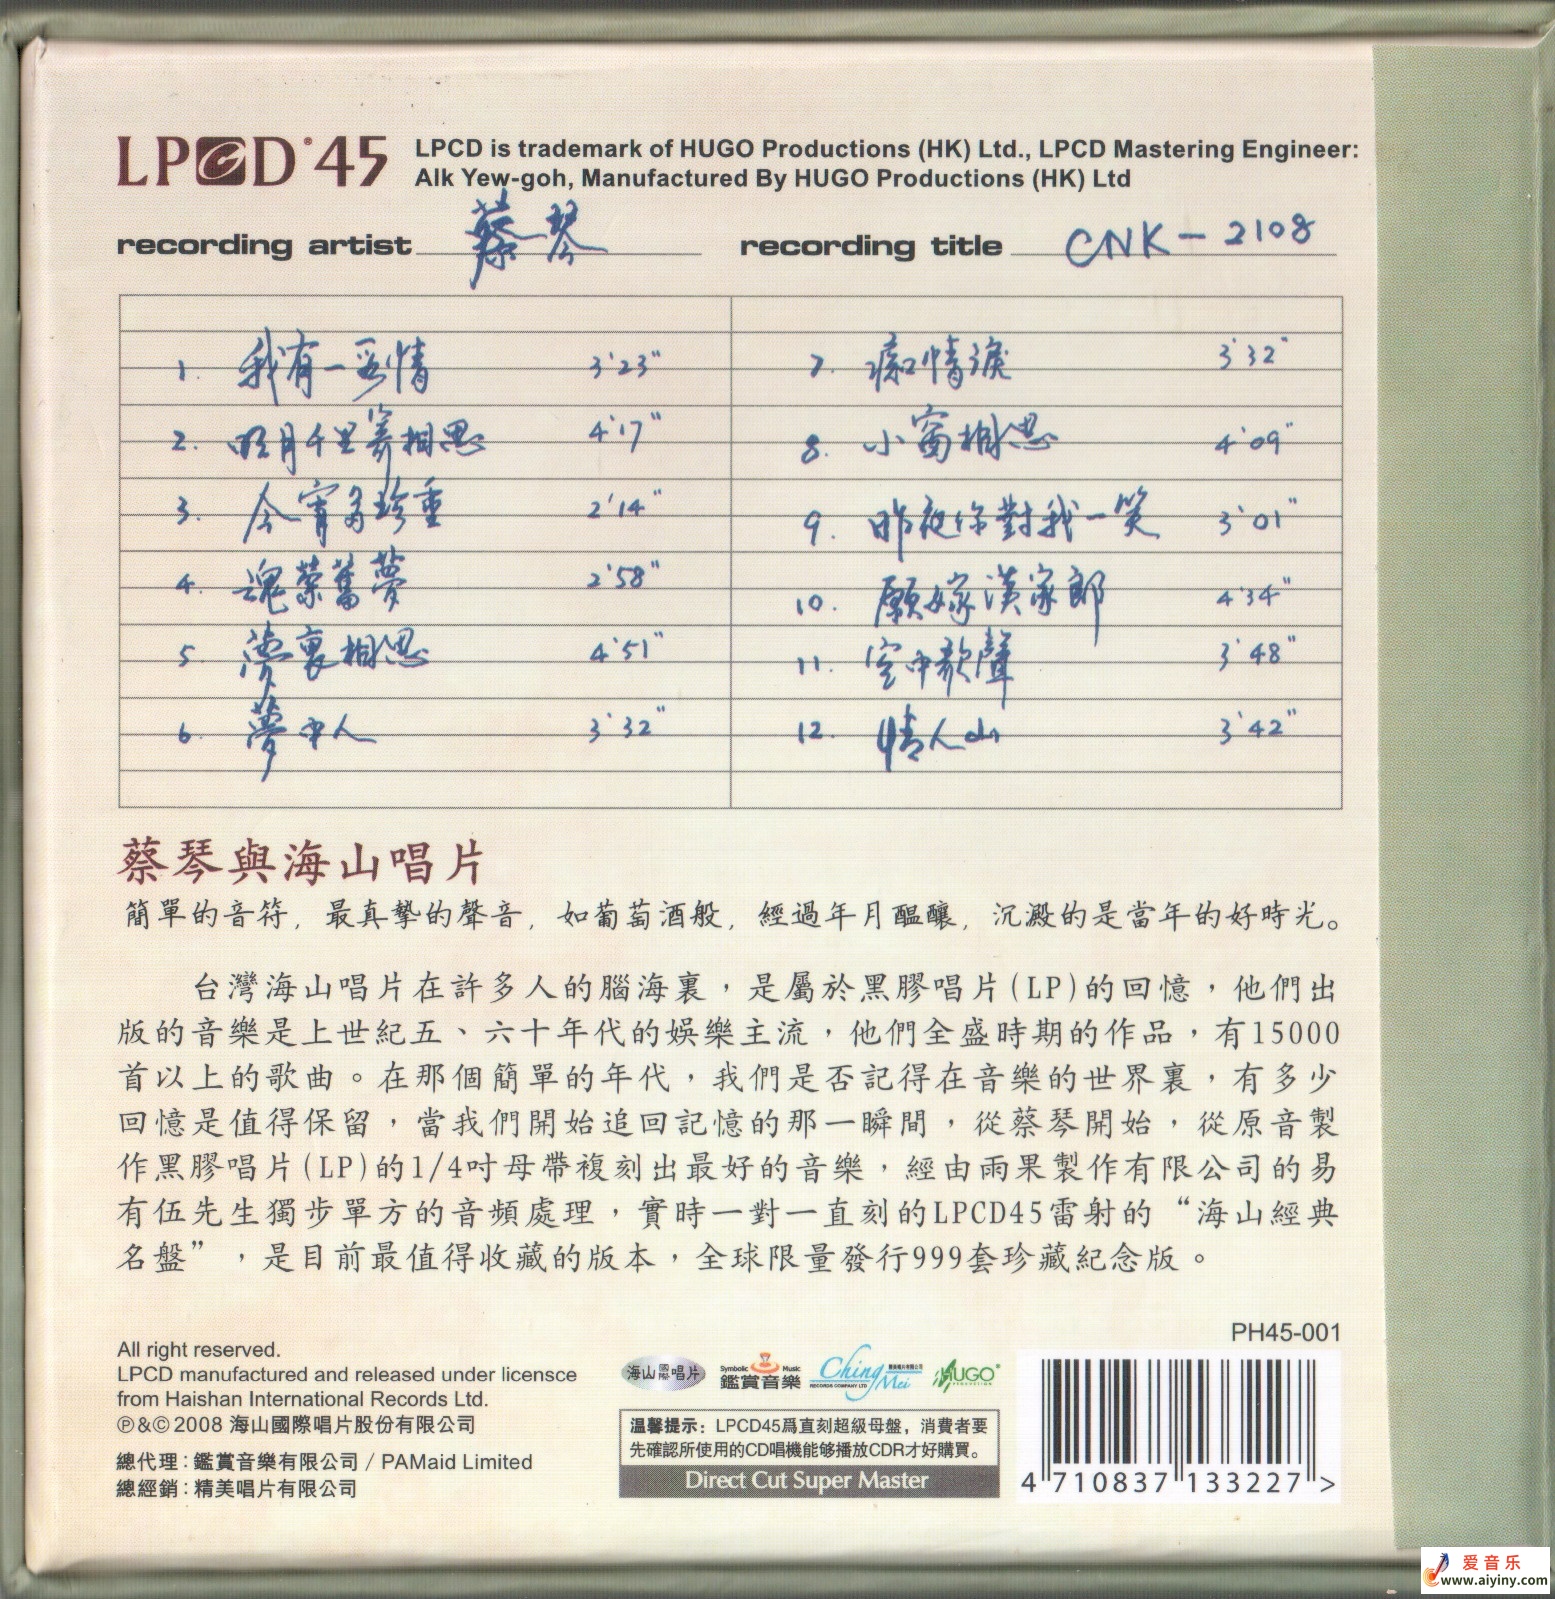 LPCD°45
LPCD is trademark of HUGO Productions (HK) Ltd., LPCD Mastering Engineer:
Alk Yew-goh, Manufactured By HUGO Productions (HK) Ltd
recording artist 蔡琴 recording title CNK-2108
1. 我有一段情 3'23"
2. 明月千里寄相思 4'17"
3. 今宵多珍重 2'14"
4. 魂縈舊夢 2'58"
5. 夢裏相思 4'51"
6. 夢中人 3'32"
7. 痴情淚 3'32"
8. 小窗相思 4'09"
9. 昨夜你對我一笑 3'01"
10. 願嫁漢家郎 4'34"
11. 空中歌聲 3'48"
12. 情人山 3'42"
蔡琴與海山唱片
簡單的音符，最真摯的聲音，如葡萄酒般，經過年月醞釀，沉澱的是當年的好時光。
台灣海山唱片在許多人的腦海裏，是屬於黑膠唱片(LP)的回憶，他們出
版的音樂是上世紀五、六十年代的娛樂主流，他們全盛時期的作品，有15000
首以上的歌曲。在那個簡單的年代，我們是否記得在音樂的世界裏，有多少
回憶是值得保留，當我們開始追回記憶的那一瞬間，從蔡琴開始，從原音製
作黑膠唱片(LP)的1/4吋母帶複刻出最好的音樂，經由雨果製作有限公司的易
有伍先生獨步單方的音頻處理，實時一對一直刻的LPCD45雷射的“海山經典
名盤”，是目前最值得收藏的版本，全球限量發行999套珍藏紀念版。
All right reserved.
LPCD manufactured and released under licensce
from Haishan International Records Ltd.
℗&©2008 海山國際唱片股份有限公司
總代理：鑑賞音樂有限公司 / PAMaid Limited
總經銷：精美唱片有限公司
海山國際唱片
Symbolic Music
鑑賞音樂
Ching Mei
RECORDS COMPANY LTD
HUGO
溫馨提示：LPCD45爲直刻超級母盤，消費者要
先確認所使用的CD唱機能够播放CDR才好購買。
Direct Cut Super Master
PH45-001
4 710837 133227 >
爱音乐
www.aiyiny.com